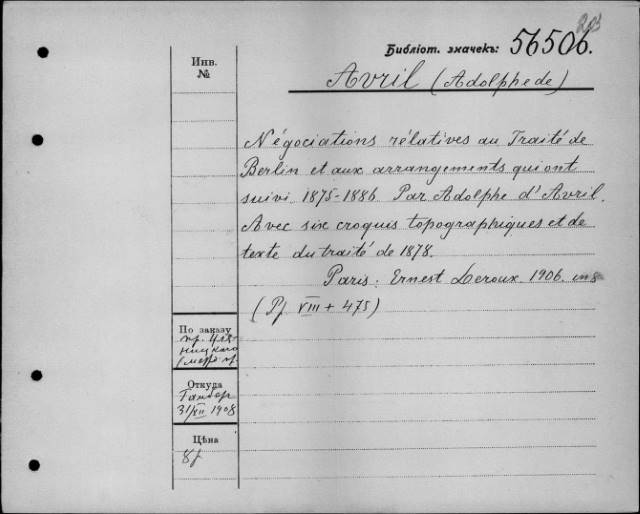 Библіот. значекъ: 56506.
Avril (Adolphe de)
Инв.
№
Négociations rélatives au Traité de
Berlin et aux arrangements qui ont
suivi 1875-1886 Par Adolphe d'Avril.
Avec six croquis topographiques et de
texte du traité de 1878.
Paris: Ernest Leroux. 1906. in 8
(Pf VIII + 475)
По заказу
пр.
Откуда
31/XII 1908
Цѣна
8f